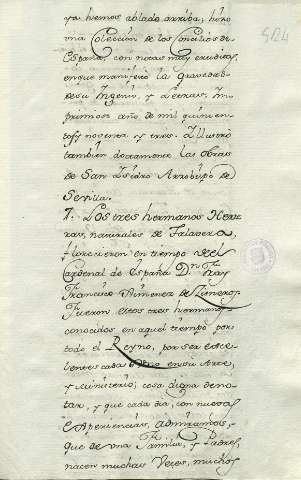 524
ya hemos ablado arriba, hizo
una Coleccion de los Concilios de
España, con notas muy eruditas,
en que manifestó la grandeza
de su Ingenio, y Letras. Im
primiose año de mil quinien
tos y noventa y tres. Illustró
tambien doctamente las Obras
de San Isidro Arzobispo de
Sevilla.
Los tres hermanos Herre
ras, naturales de Talavera,
florecieron en tiempo del
Cardenal de España Dn. Fray
Francisco Ximenez de Zisneros.
Fueron estos tres hermanos
conocidos en aquel tiempo por
todo el Reyno, por ser exce
lentes cada uno en su Arte,
y Ministerio; cosa digna de no
tar, y que cada dia, con nuevas
experiencias, admiramos,
que de una Familia, y Padres,
nacen muchas Veces, muchos